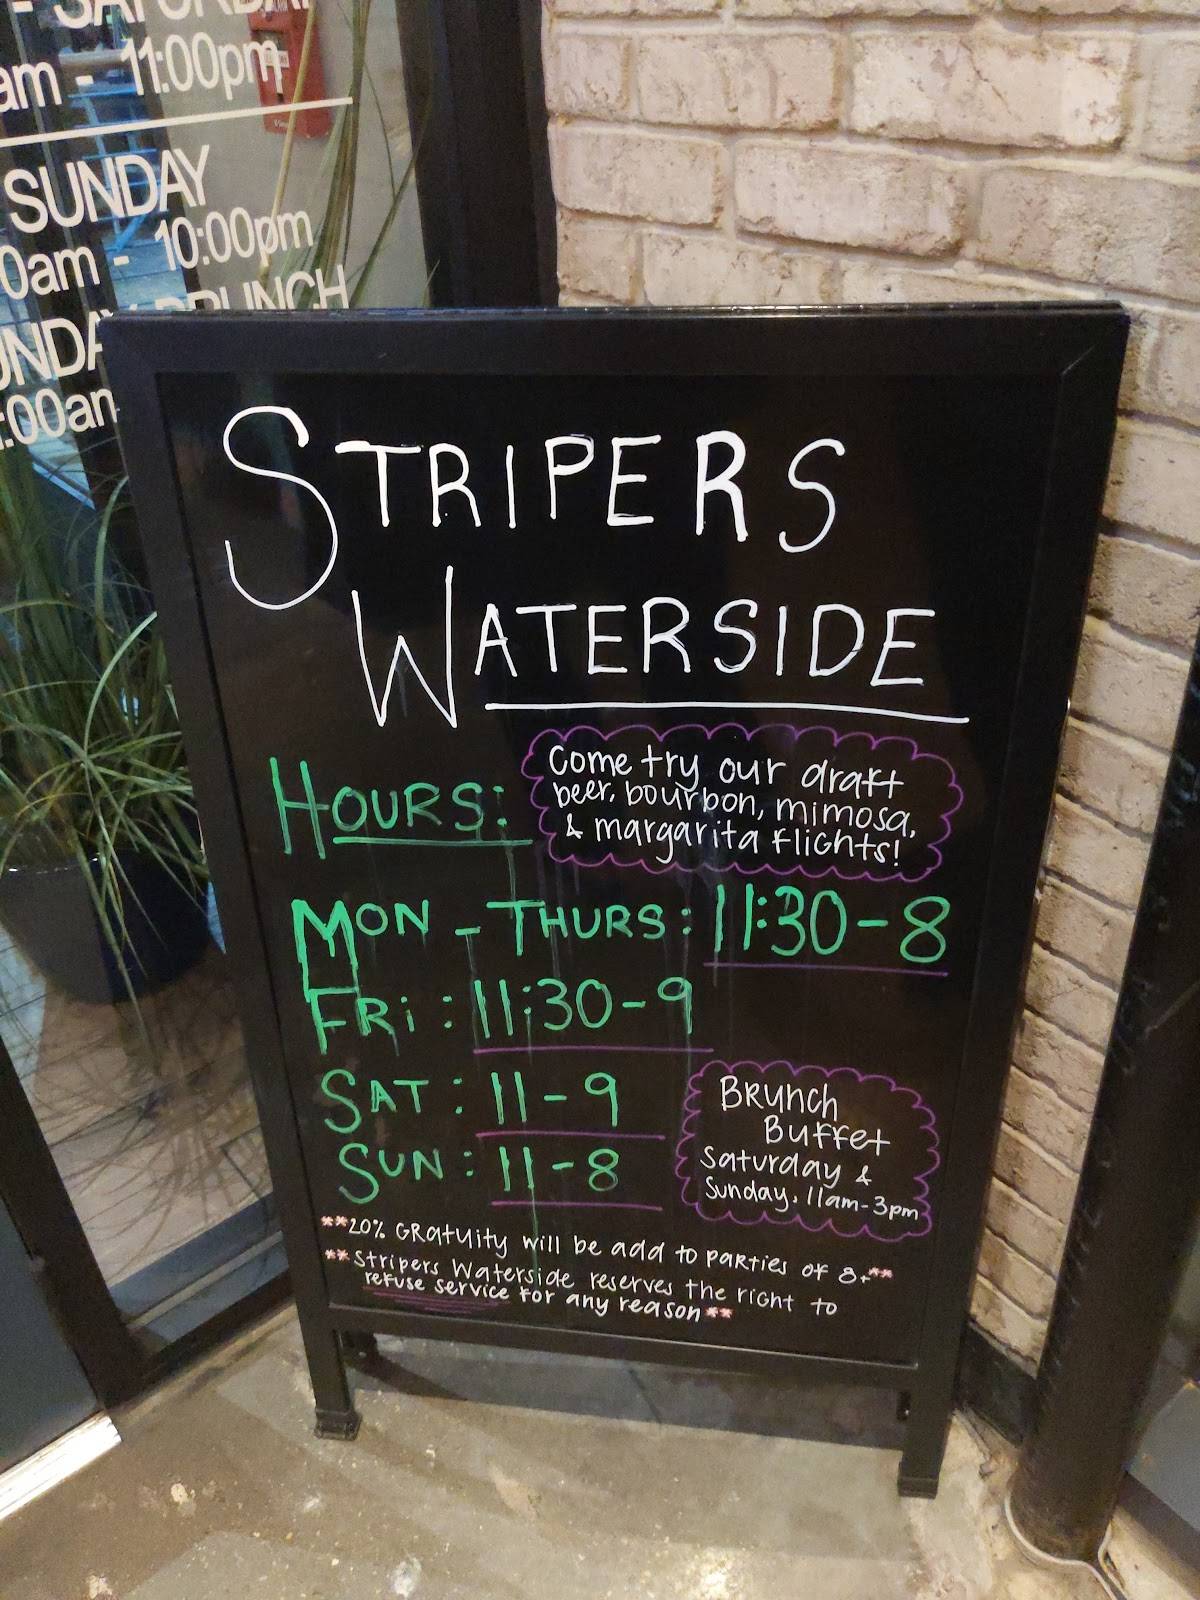 - SATURDAY
am - 11:00pm
SUNDAY
0am - 10:00pm
BRUNCH
:00am
STRIPERS
WATERSIDE
HOURS:
Come try our draft
beer, bourbon, mimosa,
& margarita flights!
MON - THURS: 11:30-8
FRi: 11:30-9
SAT: 11-9
SUN: 11-8
BRUNCH
BUFFET
Saturday &
Sunday, 11am-3pm
**20% GRatuity will be add to parties of 8+**
**Stripers Waterside reserves the right to
refuse service for any reason**